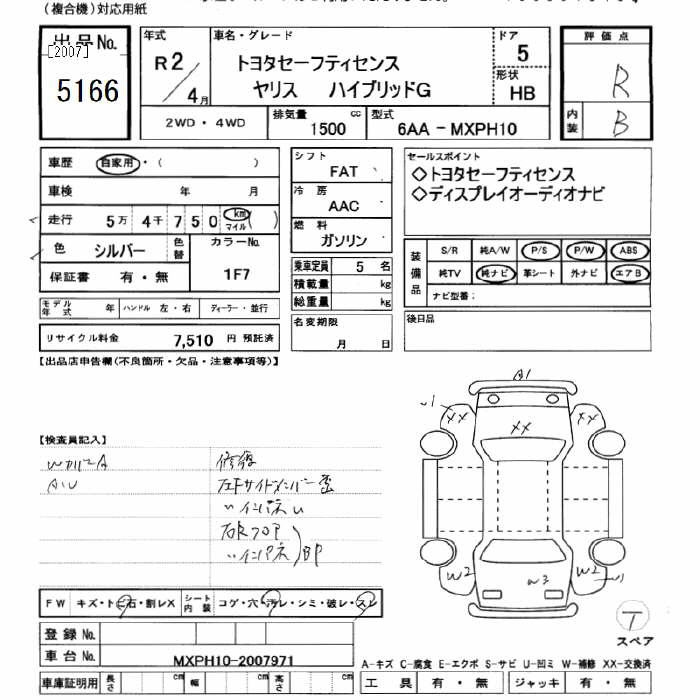 (複合機)対応用紙
出品No.
[2007]
5166
年式
R2/4月
車名・グレード
トヨタセーフティセンス
ヤリス ハイブリッドG
ドア
5
形状
HB
評価点
R
内装
B
2WD・4WD
排気量 1500 cc
型式 6AA-MXPH10
車歴 自家用・( )
車検 年 月
走行 5万 4千 750 km マイル
色 シルバー 色替
カラーNo.
1F7
保証書 有・無
モデル年式 年 ハンドル 左・右 ディーラー・並行
リサイクル料金 7,510 円 預託済
シフト
FAT
冷房
AAC
燃料
ガソリン
乗車定員 5 名
積載量 kg
総重量 kg
名変期限
月 日
セールスポイント
◇トヨタセーフティセンス
◇ディスプレイオーディオナビ
装備品
S/R 純A/W P/S P/W ABS
純TV 純ナビ 革シート 外ナビ エアB
ナビ型番:
後日品
【出品店申告欄(不良箇所・欠品・注意事項等)】
【検査員記入】
A・U
修復
〃インパネ U
右Rフロア
〃インパネ
BP
A1
w1
XX
XX
XX
W2
W3
W2
w1
T
スペア
FW キズ・トビ石・割レX
シート内装 コゲ・穴・汚レ・シミ・破レ・スレ
登録No.
車台No. MXPH10-2007971
車庫証明用 長さ cm 幅 cm 高さ cm
A-キズ C-腐食 E-エクボ S-サビ U-凹ミ W-補修 XX-交換済
工具 有・無 ジャッキ 有・無